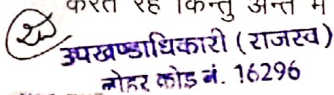 करते रहे किन्तु अन्त में
उपखण्डाधिकारी (राजस्व)
नोहर कोड नं. 16296